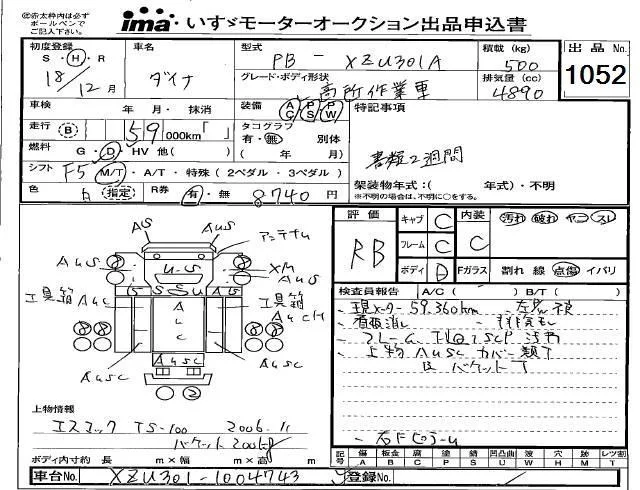 ㊟赤太枠内は必ず
ボールペンで
ご記入下さい。
ima いすゞモーターオークション出品申込書
初度登録 S・H・R 18/12月
車名 ダイナ
型式 PB - XZU301A
積載 (kg) 500
出品No. 1052
グレード・ボディ形状 高所作業車
排気量 (cc) 4890
車検 年 月・抹消
装備 AC PS PW
特記事項
走行 B 59,000km「 」
タコグラフ 有・無 別体
( 年 月)
書類2週間
燃料 G・D・HV 他( )
シフト F5 M/T・A/T・特殊(2ペダル・3ペダル)
架装物年式:( 年式)・不明
※不明の場合は、不明に○をする。
色 白 指定 R券 有・無 8740円
評価 RB
キャブ C
フレーム C
ボディ D
内装 C
汚れ 破れ ヤニ スレ
Fガラス 割れ 線 点傷 イバリ
AUS AUS アンテナ
AUS U-S XM AUS
工具箱 AUC
工具箱
AUSC AUSC AUSC
検査員報告 A/C( ) B/T( )
現メーター 59.360km
看板消し
上物 AUSC カバー類
バケット
上物情報
TS-100 2006.11
バケット
ボディ内寸約 長 m×幅 m×高 m
記号 傷A 板金B 腐C 塗P 錆S 凹凸曲U 波W 穴H 跡M レツ割T
車台No. XZU301-1004743 登録No.